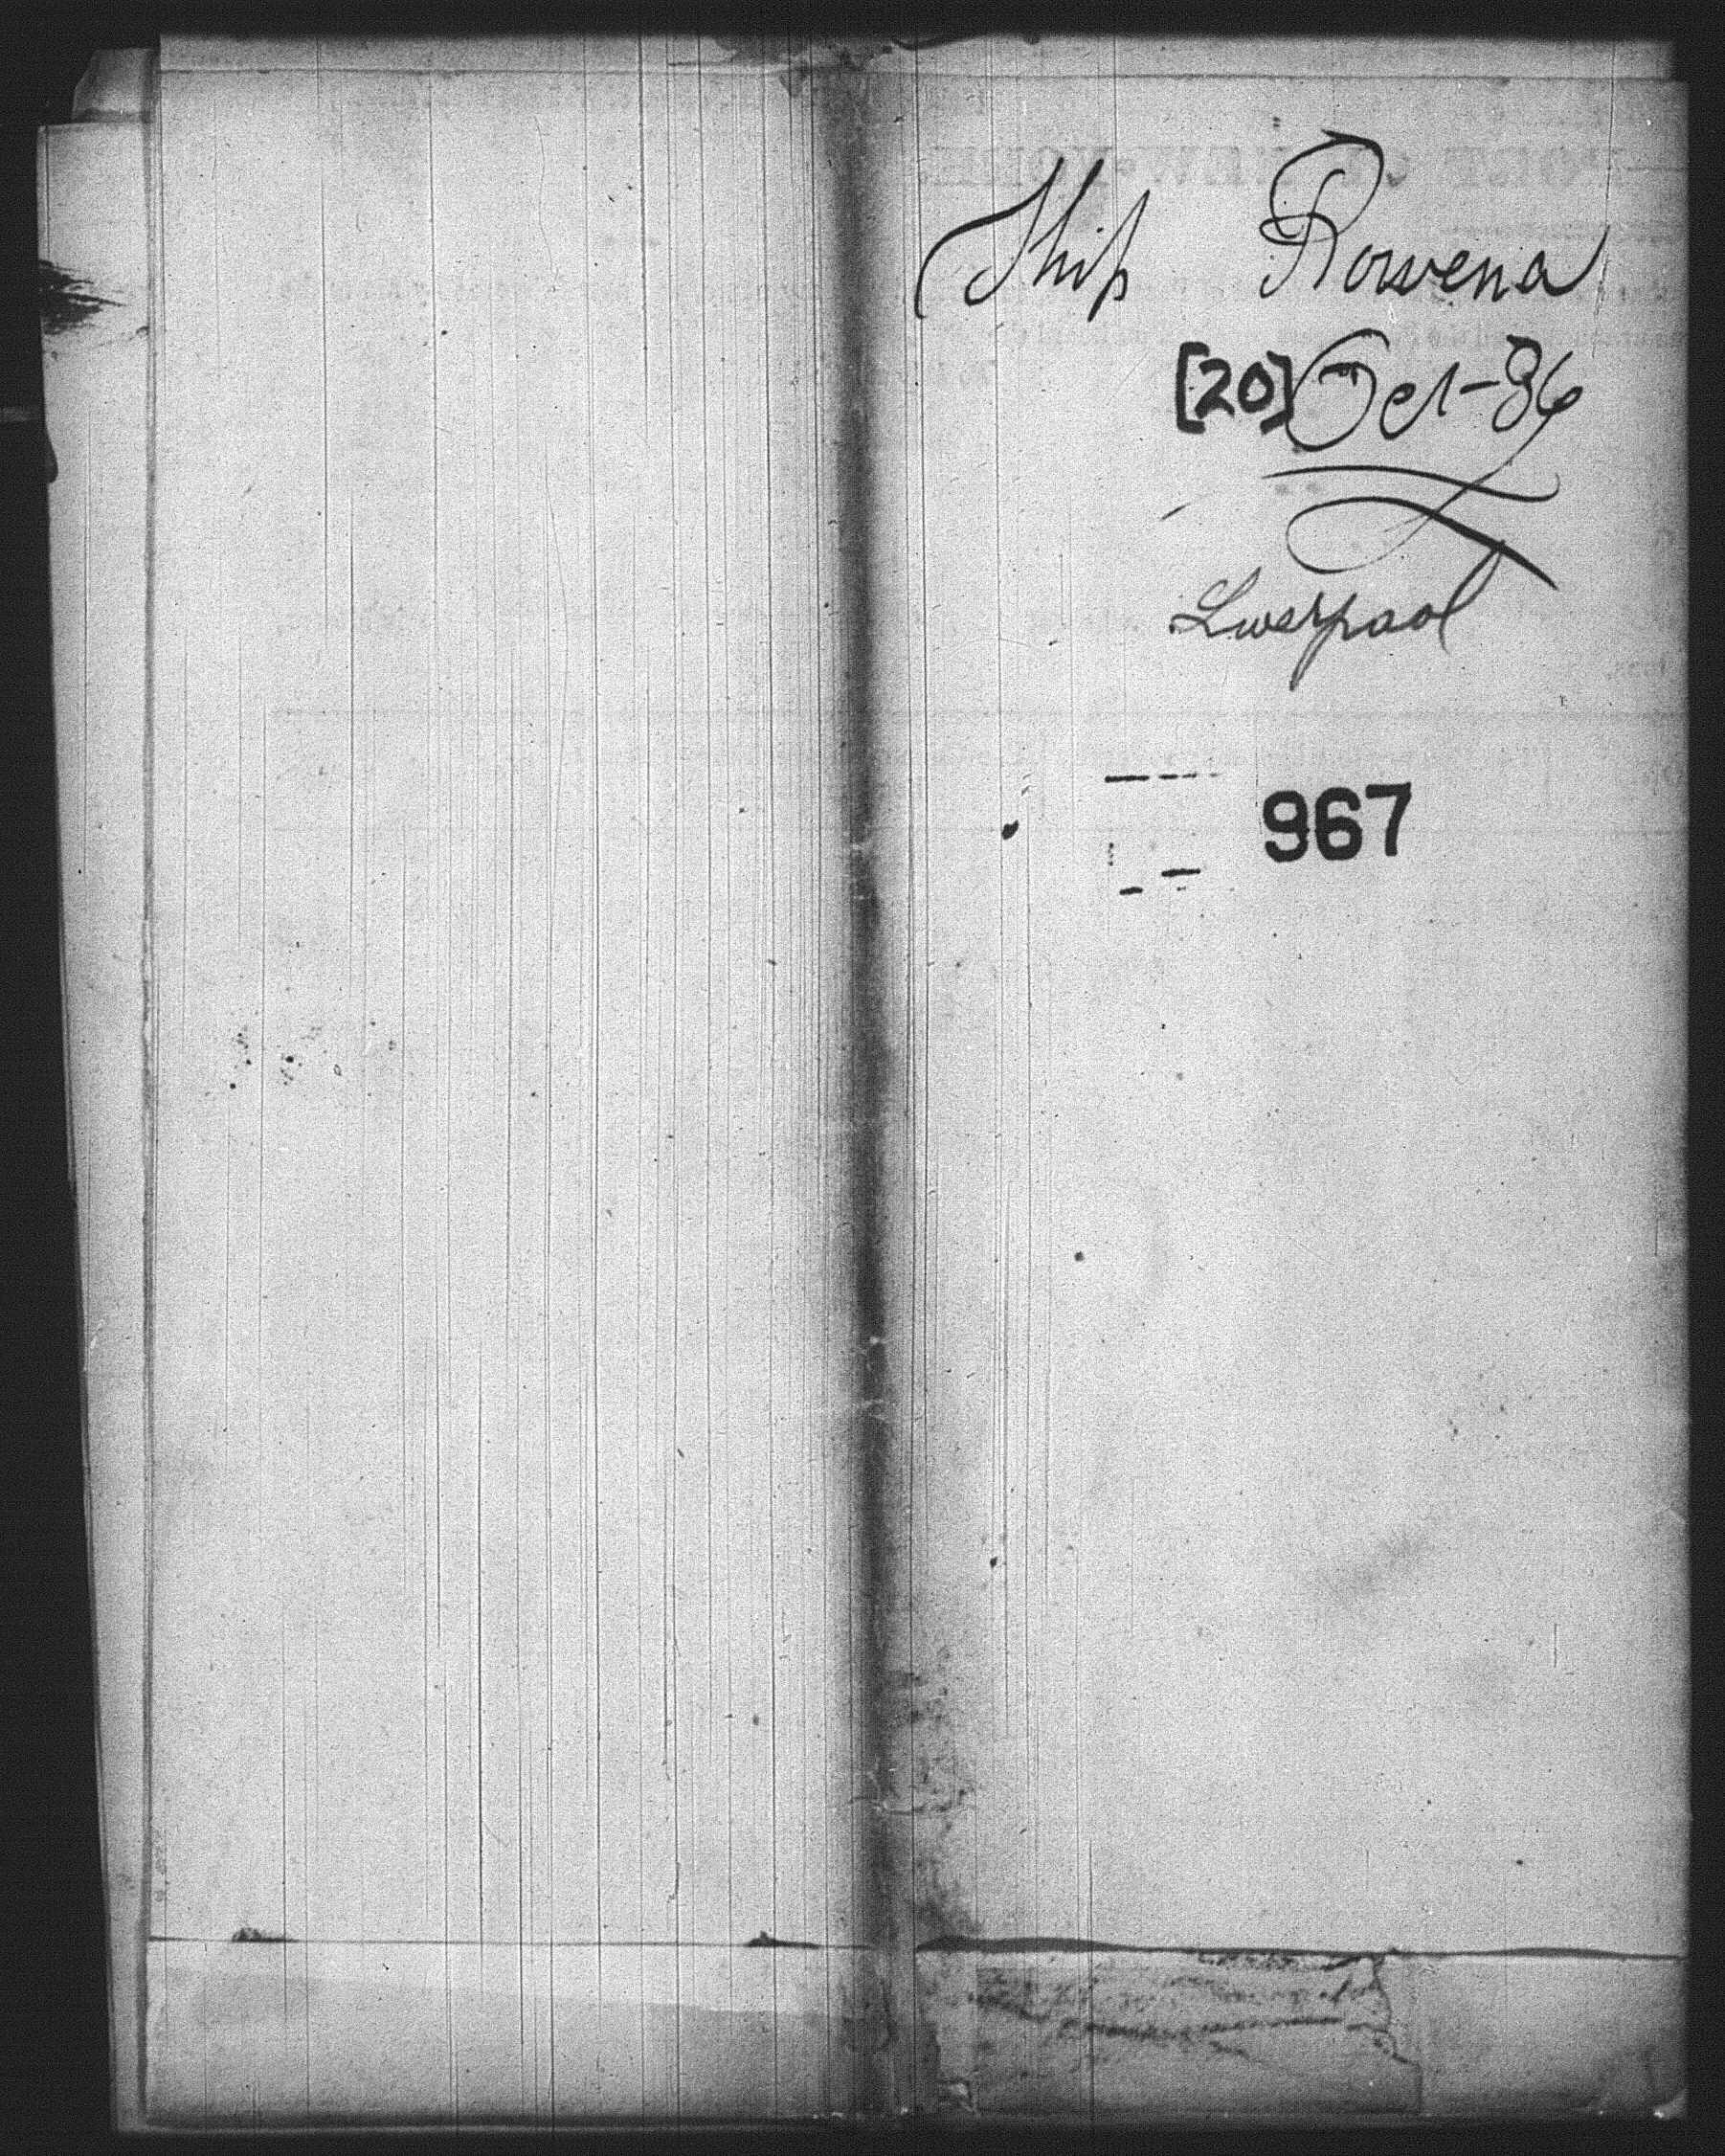 Ship Rowena
[20] Oct-36
Liverpool
967